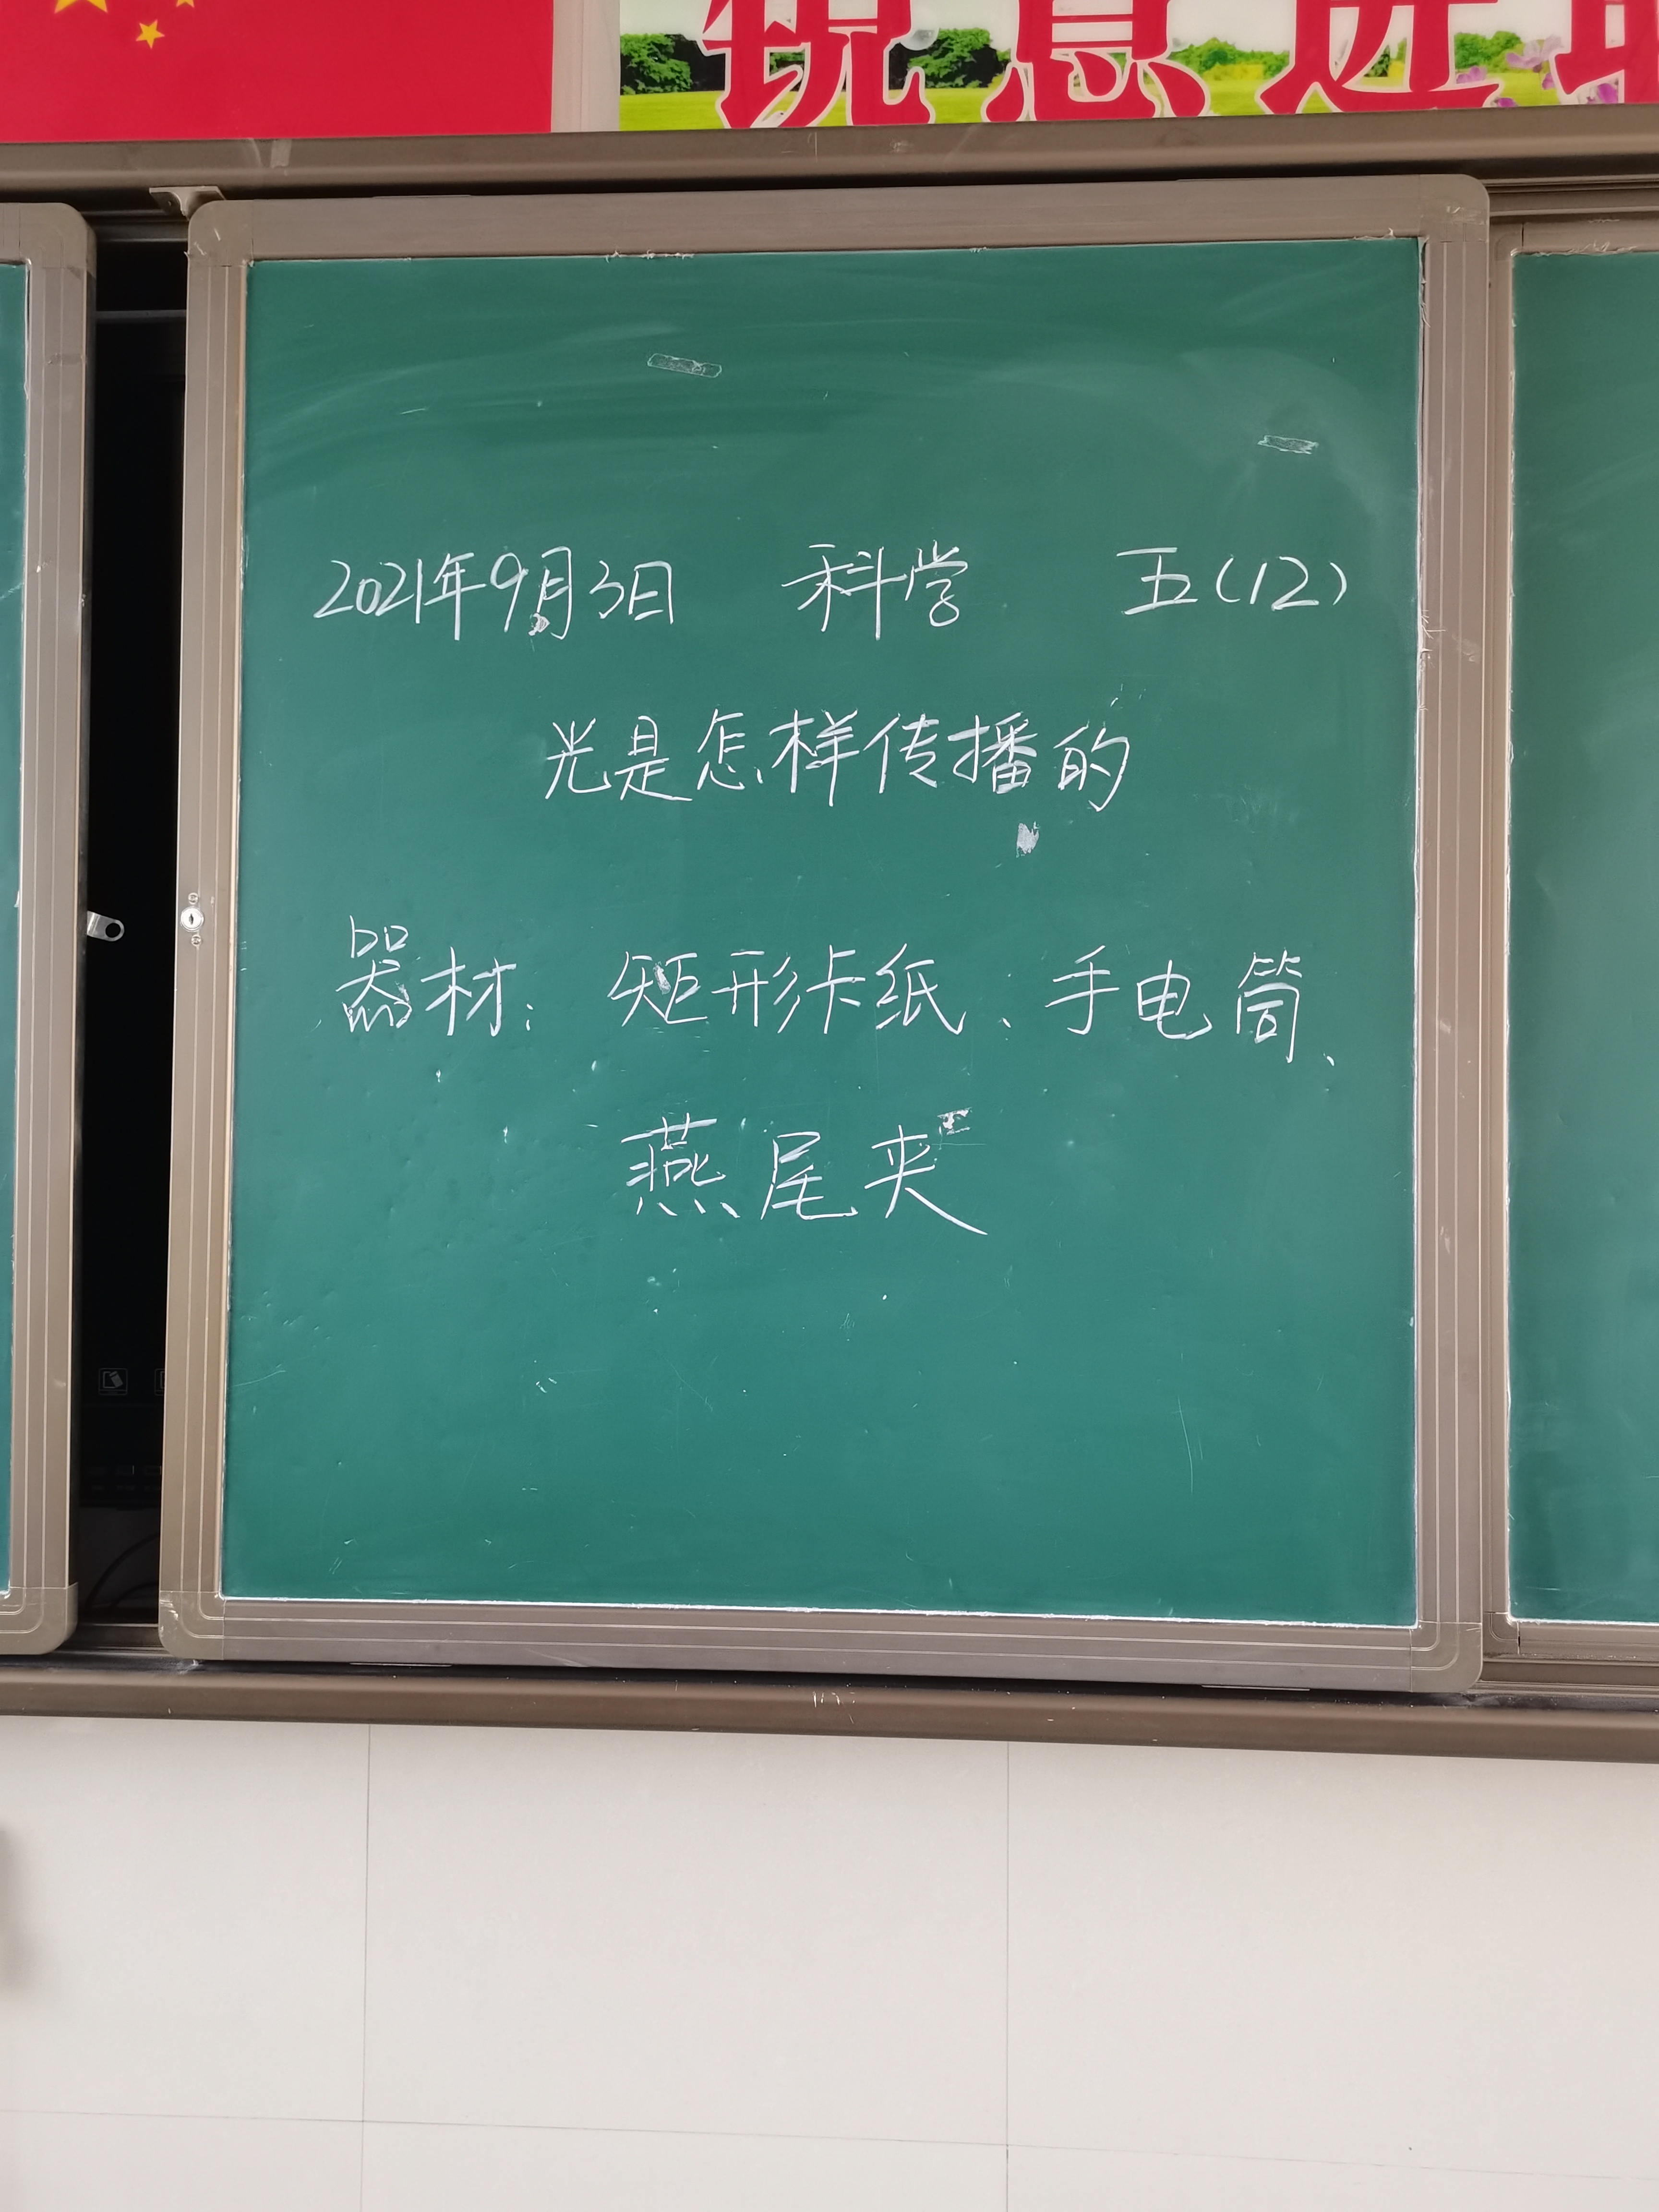 锐意进取
2021年9月3日 科学 五(12)
光是怎样传播的
器材: 矩形卡纸、手电筒、
燕尾夹